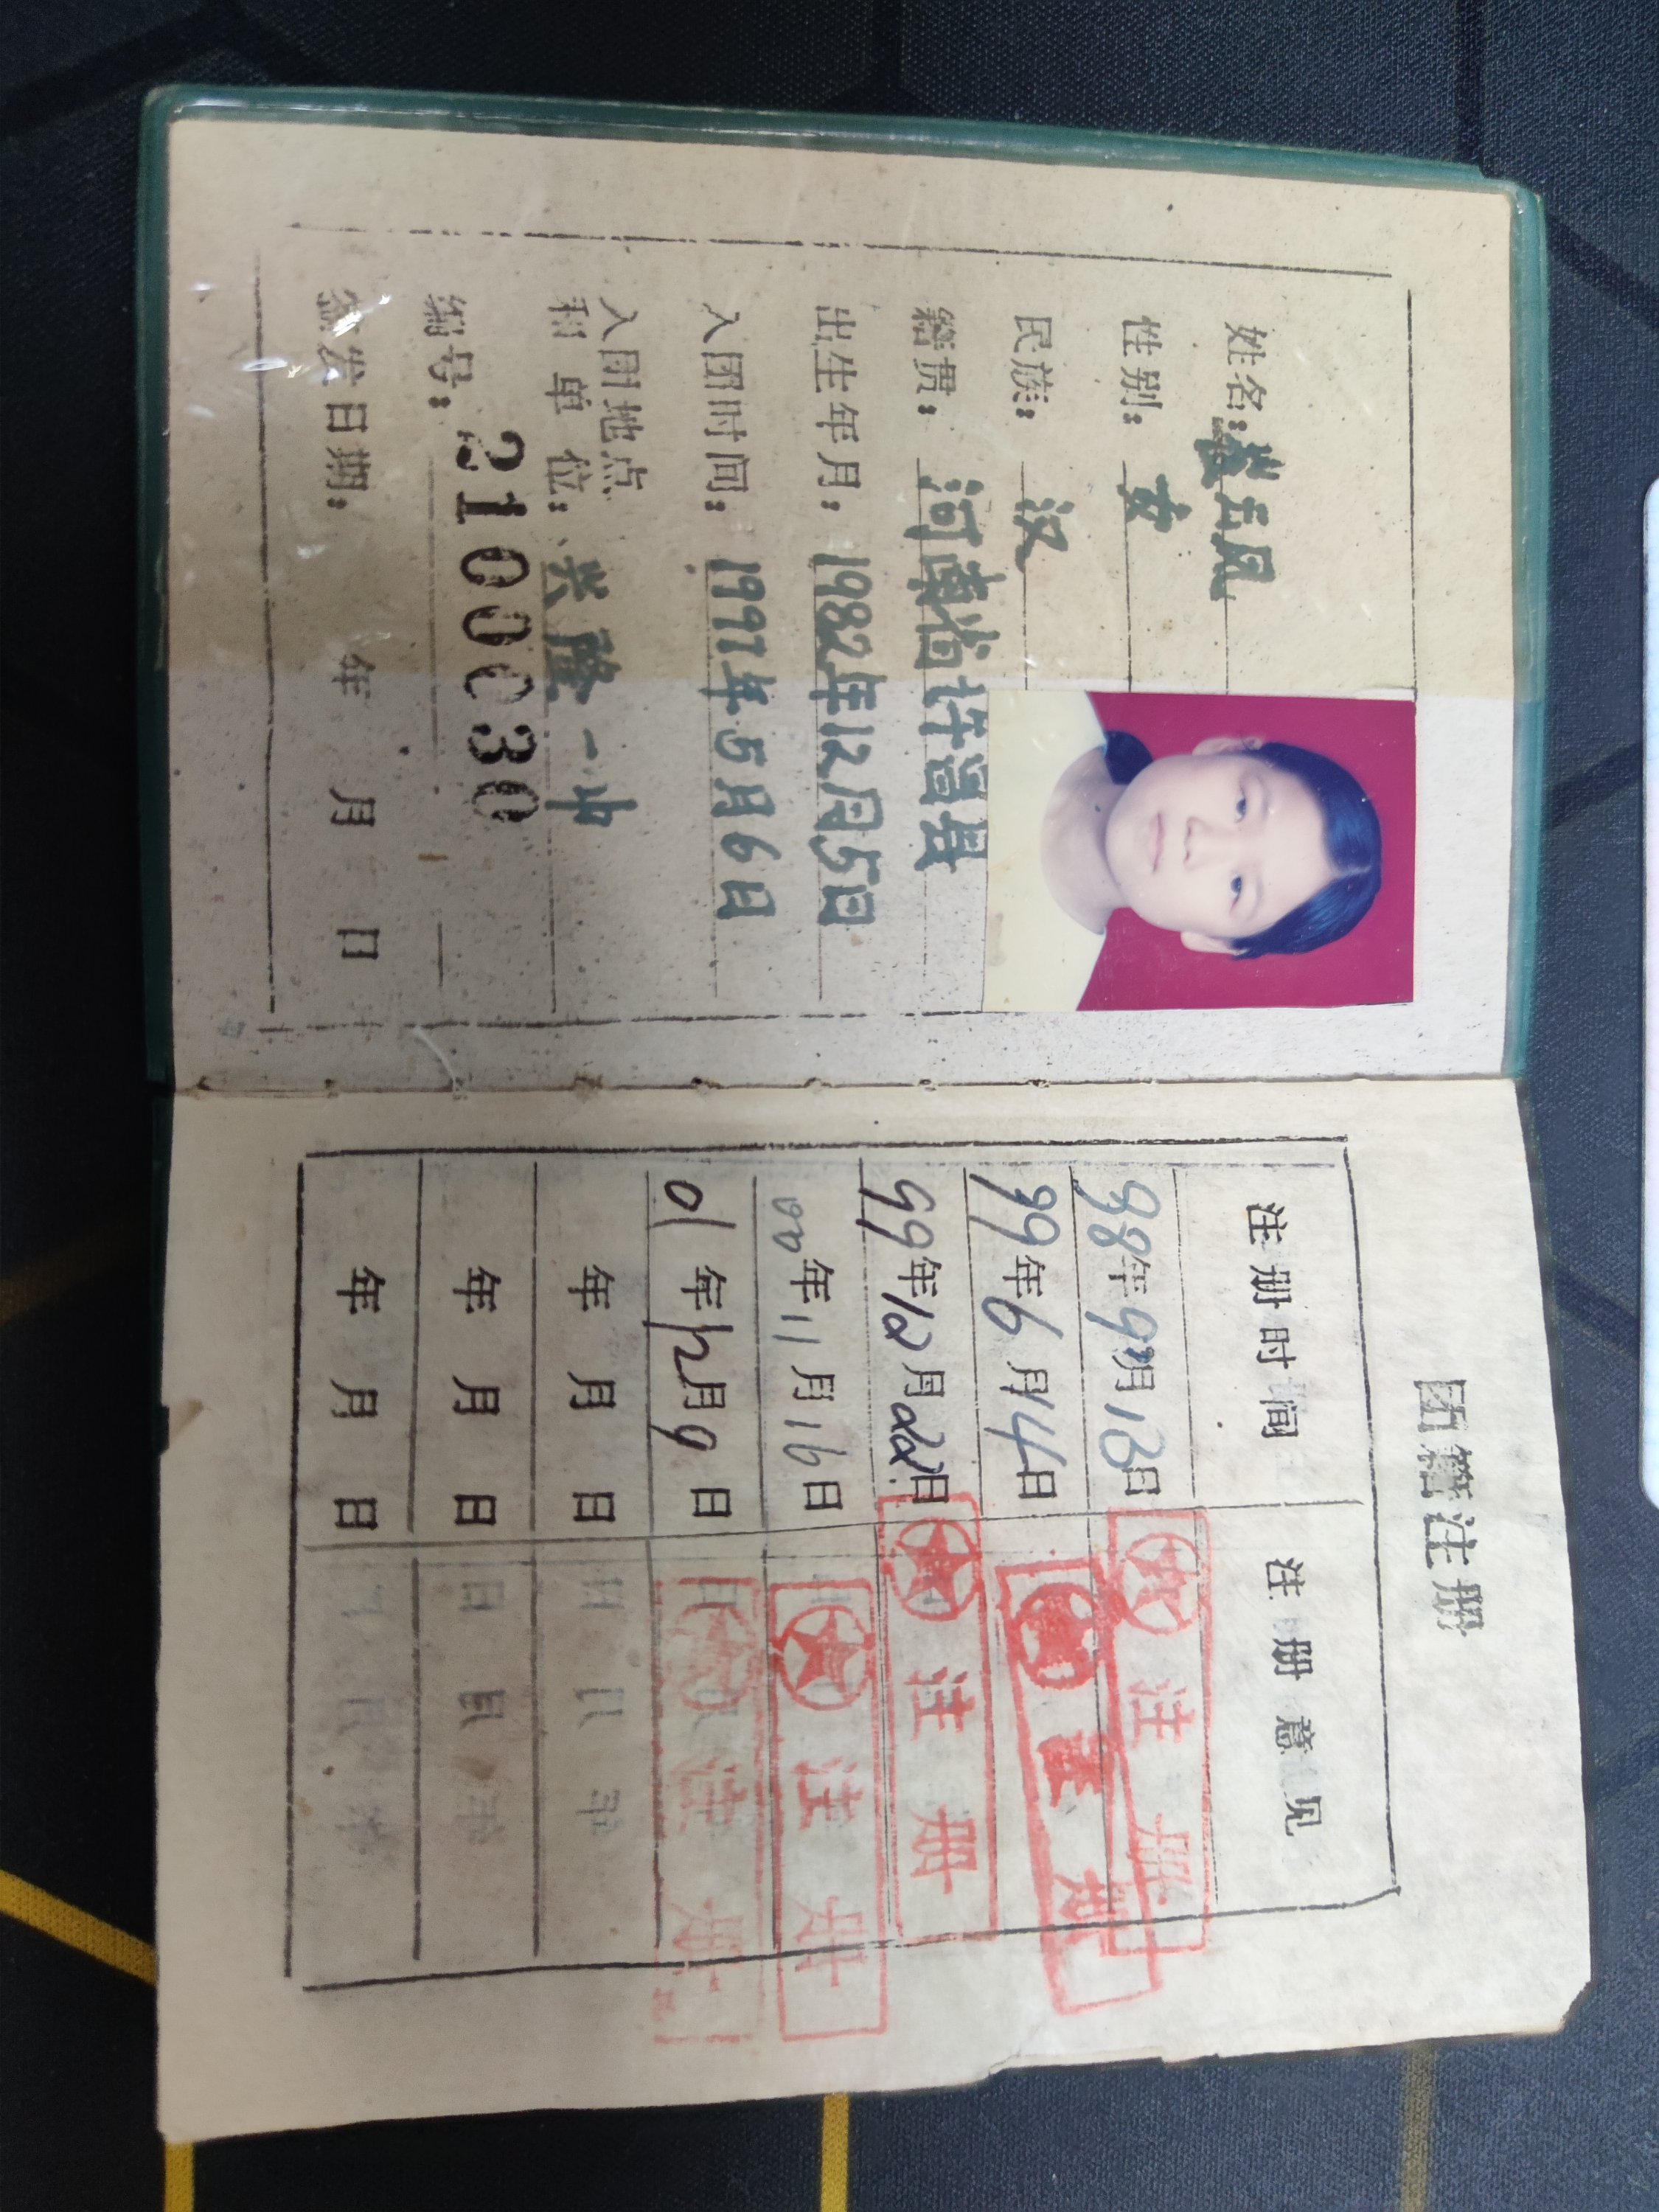 姓名：
五凤
性别：女
民族：汉
籍贯：河南省许昌县
出生年月：1982年12月5日
入团时间：1997年5月6日
入团地点
和单位：兴隆一中
编号：2100030
签发日期：　年　月　日
团籍注册
注册时间 注册意见
98年9月13日 注册
99年6月14日 注册
99年12月22日 注册
00年11月16日 注册
01年12月9日 注册
年　月　日
年　月　日
年　月　日